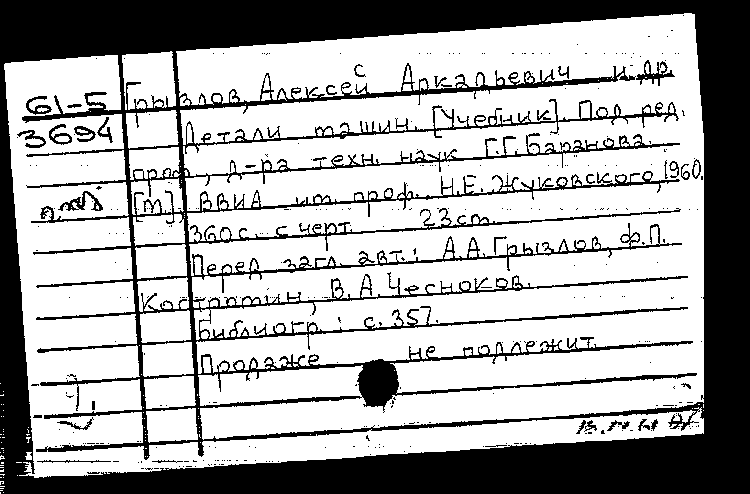 61-5
3694
Грызлов, Алексей Аркадьевич и др.
Детали машин. [Учебник]. Под ред.
проф., д-ра техн. наук Г.Г. Баранова.
[М], ВВИА им. проф. Н.Е. Жуковского, 1960.
360 с. с черт. 23 см.
Перед загл. авт.: А.А. Грызлов, Ф.П.
Костраптин, В.А. Чесноков.
Библиогр.: с. 357.
Продаже не подлежит.